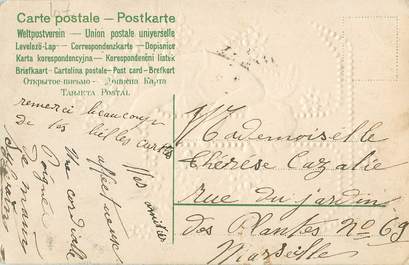 Carte postale – Postkarte
Weltpostverein — Union postale universelle
Levelező-Lap — Correspondenzkarte — Dopisnice
Karta korespondencyjna — Korespondenční lístek
Briefkaart – Cartolina postale – Post card – Brefkort
Открытое письмо — Дописна Карта
Tarjeta Postal
remerci beaucoup
de tes belles cartes
Mademoiselle
Thérèse Cazalie
rue du jardin
des Plantes No 69
Marseille
Vos amitiés
affectueuse
Une cordiale
Poignée
de main